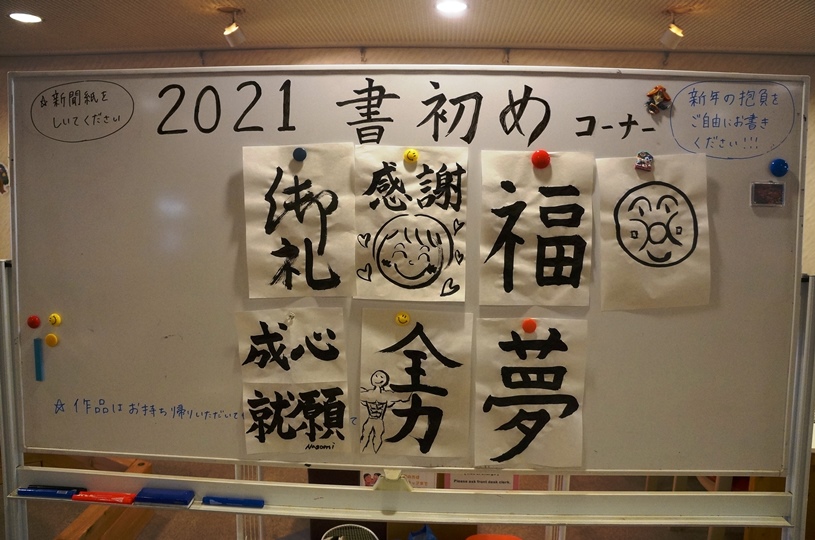 ☆新聞紙を
しいてください
2021 書初めコーナー
新年の抱負を
ご自由にお書き
ください!!!
御札
感謝
福
心願
成就
Naomi
全力
夢
☆作品はお持ち帰りいただいて
Please see front desk clerk.